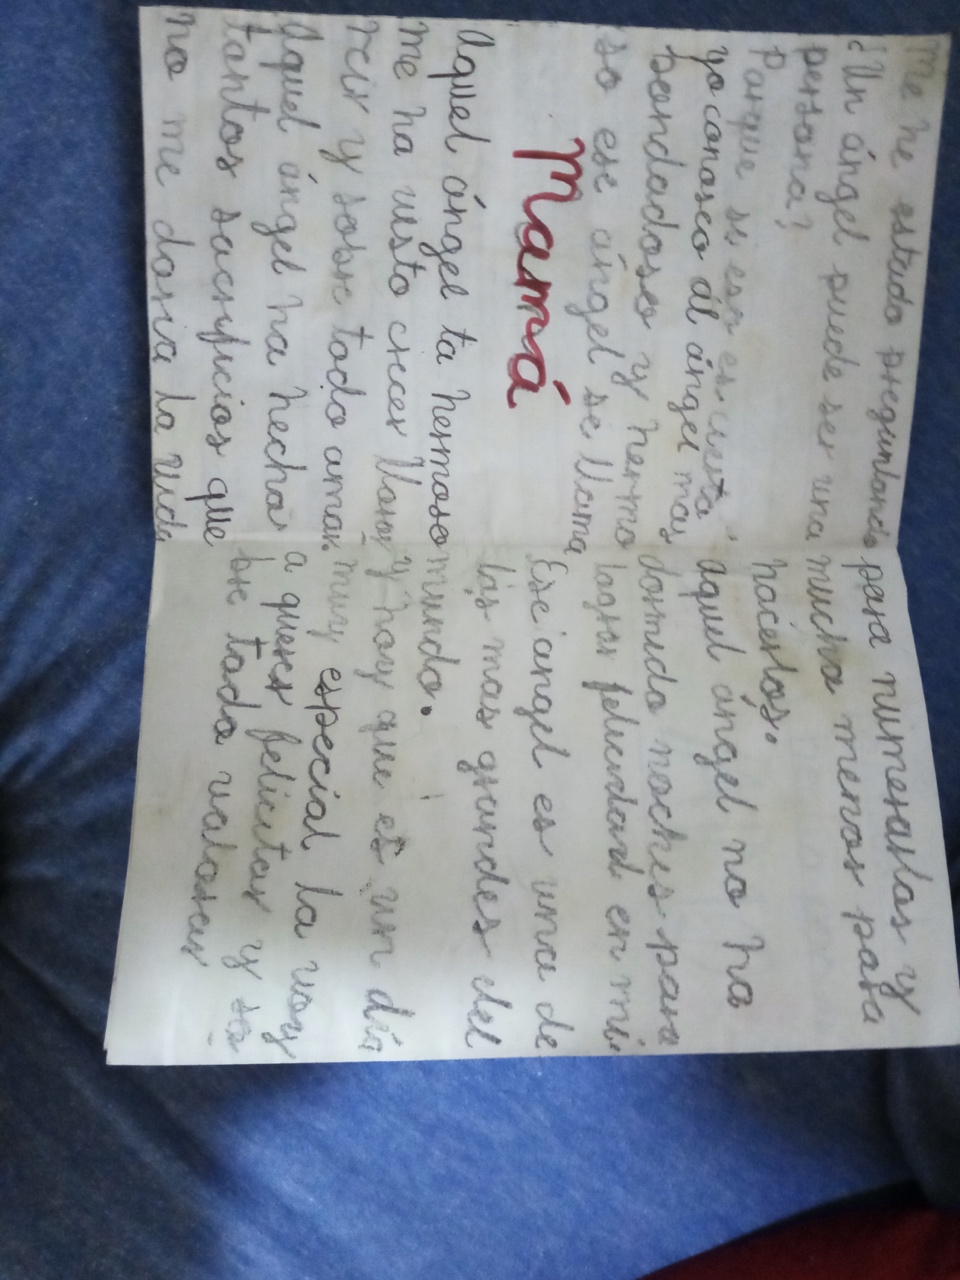 Me he estado preguntando
¿Un ángel puede ser una
persona?
Porque si eso es cierto
yo conosco al ángel mas
bondadoso y hermo
so ese ángel se llama
Mamá
Aquel ángel ta hermoso
me ha visto crecer llorar
reir y sobre todo amar.
Aquel ángel ha hecho
tantos sacrificios que
no me daria la vida
para numerarlos y
mucho menos para
hacerlos.
Aquel angel no ha
dormido noches para
lograr felicidad en mi.
Ese angel es una de
las mas grandes del
mundo.
y hoy que es un día
muy especial la voy
a querer felicitar y so
bre todo valorar